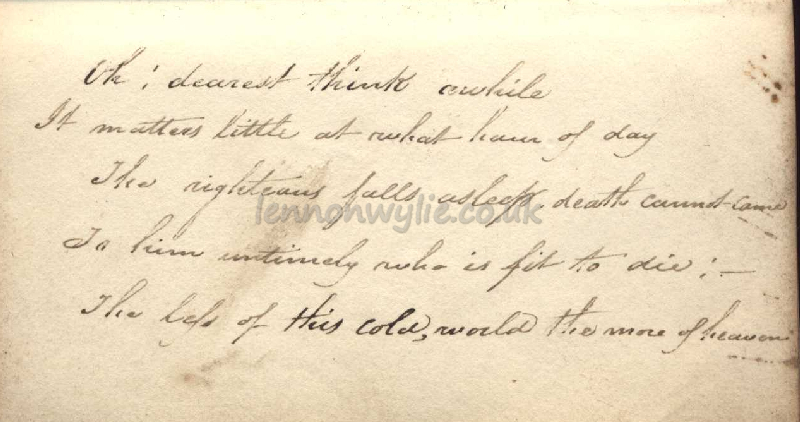 Oh ; dearest think awhile
It matters little at what hour of day
The righteous falls asleep, death cannot come
lennonwylie.co.uk
To him untimely who is fit to die ; —
The less of this cold, world the more of heaven